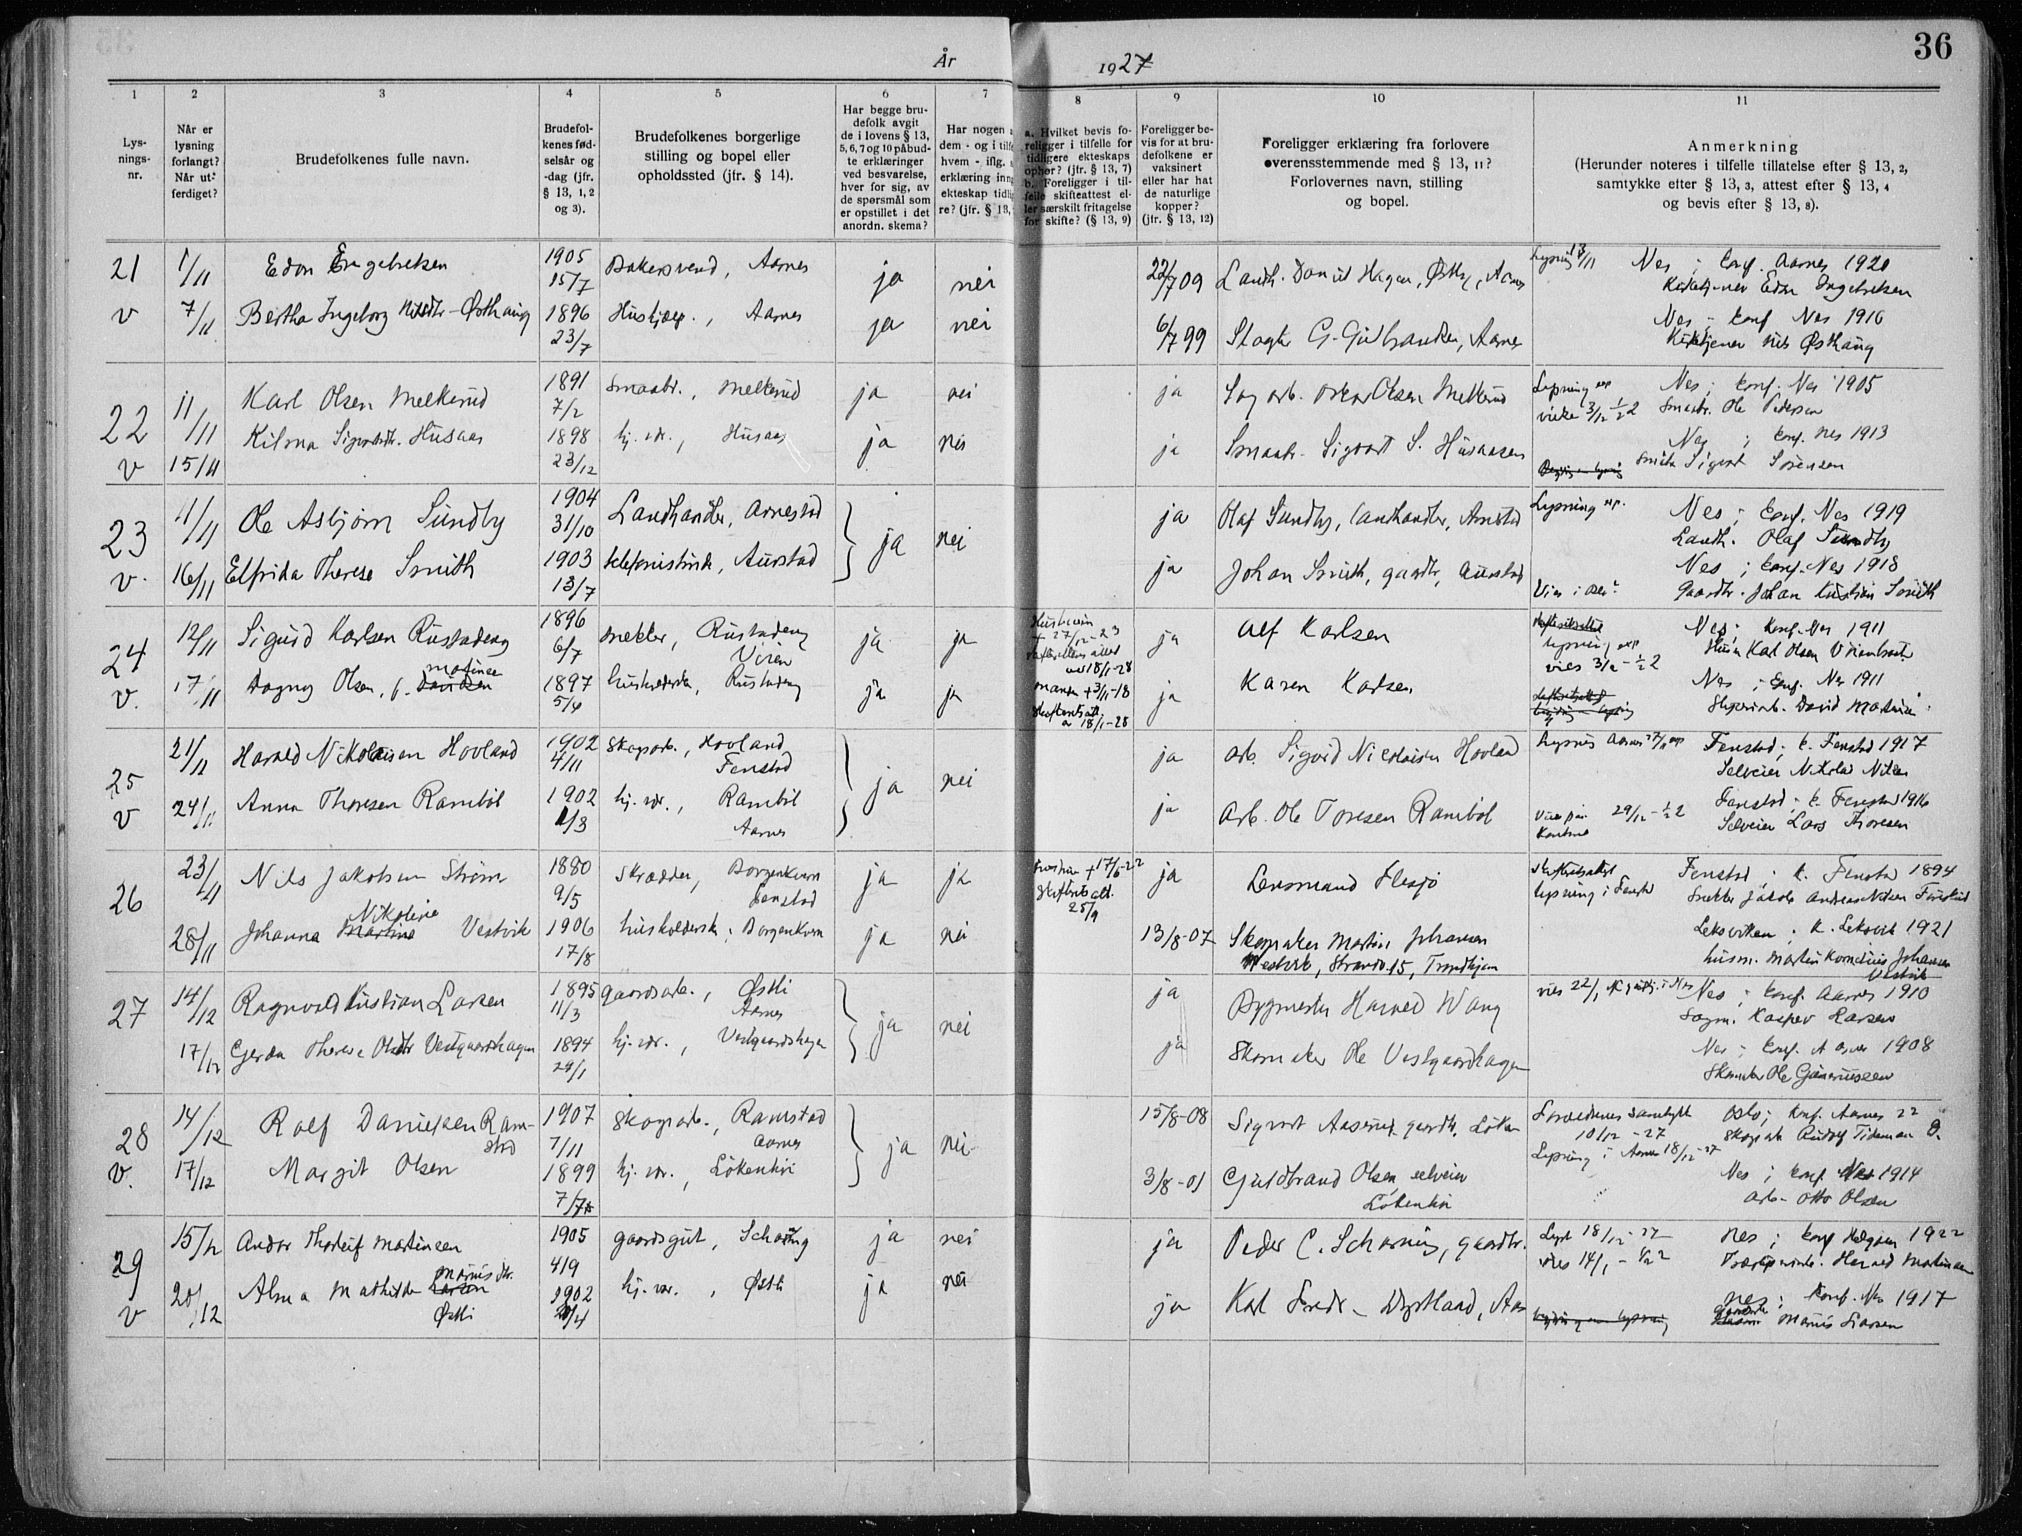 36
År 1927
1 2 3 4 5 6 7 8 9 10 11
Lys-
nings-
nr.
Når er
lysning
forlangt?
Når ut-
ferdiget?
Brudefolkenes fulle navn.
Brudefol-
kenes fød-
selsår og
-dag (jfr.
§ 13, 1, 2
og 3).
Brudefolkenes borgerlige
stilling og bopel eller
opholdssted (jfr. § 14).
Har begge bru-
defolk avgit
de i lovens § 13,
5, 6, 7 og 10 påbud-
te erklæringer
ved besvarelse,
hver for sig, av
de spørsmål som
er opstillet i det
anordn. skema?
Har nogen a
dem - og i tilfe
hvem - iflg. s
erklæring inng
ekteskap tidli
re? (jfr. § 13,
a. Hvilket bevis fo-
religger i tilfelle for
tidligere ekteskaps
ophør? (jfr. § 13, 7)
b. Foreligger i til-
felle skifteattest el-
ler særskilt fritagelse
for skifte? (§ 13, 9)
Foreligger be-
vis for at bru-
defolkene er
vaksinert
eller har hat
de naturlige
kopper?
(jfr. § 13, 12)
Foreligger erklæring fra forlovere
overensstemmende med § 13, 11?
Forlovernes navn, stilling
og bopel.
Anmerkning
(Herunder noteres i tilfelle tillatelse efter § 13, 2,
samtykke efter § 13, 3, attest efter § 13, 4
og bevis efter § 13, 8).
21 1/11 Edon Engebretsen 1905 15/7 Bakersvend, Aarnes ja nei 22/7 09 Landh. Daniel Hagen, Østby, Aarnes Lysning 13/11 Nes ; konf. Aarnes 1920
Kirketjener Edon Engebretsen
v 7/11 Bertha Ingeborg Nilsdtr. Østhaug 1896 23/7 Hushjelp., Aarnes ja nei 6/7 99 Slagter G. Gulbrandsen, Aarnes Nes ; konf Nes 1910
Kirketjener Nils Østhaug
22 11/11 Karl Olsen Melkerud 1891 7/2 Smaabr., Melkerud ja nei ja Sag arb. Oskar Olsen Melkerud Lysning exp. Nes ; konf. Nes 1905
vieke 3/12 1/2 2 Smaabr. Ole Pedersen
v 15/11 Kilma Sigvartsdtr. Husaas 1898 23/12 hj. vær., Husaas ja nei ja Smaabr. Sigvart S. Husaasen Nes ; konf. Nes 1913
Smaabr Sigvart Sörensen
23 11/11 Ole Asbjørn Sundby 1904 31/10 Landhandler, Arnestad ja nei ja Olaf Sundby, landhandler, Arnstad Lysning exp. Nes ; konf. Nes 1919
Landh. Olaf Sundby
v. 16/11 Elfrida Therese Smith 1903 13/7 telefonistinde, Aurstad ja Johan Smith, gaardbr, Aurstad Nes ; konf. Nes 1918
Gaardbr. Johan Kristian Smith
24 12/11 Sigurd Karlsen Rustadeng 1896 6/7 snekker, Rustadeng ja ja Hustruen + 27/12-23 ja Alf Karlsen lysning exp Nes ; konf. Nes 1911
vies 3/12 - 1/2 2 Husm Karl Olsen
v. 17/11 Dagny Olsen, f. Martinsen 1897 5/4 husholderske, Rustadeng ja ja 18/1-28 ja Karen Karlsen Nes ; konf. Nes 1911
David
25 21/11 Harald Nikolaisen Hovland 1902 4/11 Skogarb., Hovland
Fenstad ja nei ja Arb. Sigvid Nicolaisen Hovland Lysnes Aarnes 27/11 exp Fenstad ; k. Fenstad 1917
Selveier Nikolai Nilsen
v 24/11 Anna Thoresen Rambøl 1902 1/3 hj. vær., Rambøl
Aarnes ja Arb. Ole Toresen Rambøl 29/12 - 1/2 2 Fenstad ; k. Fenstad 1916
Selveier Lars Thoresen
26 23/11 Nils Jakobsen Strøm 1880 9/5 Skrædder, Borgenkvern
Fenstad ja ja Hustru + 17/6-22
Skifteatt.
25/9 ja Lensmand Flesjø Skifteattest
lysning i Fenstad Fenstad ; k. Fenstad 1894
Snekker Jakob Andreas Nilsen
28/11 Johanna Nikoline Vestvik 1906 17/8 husholderske, Borgenkvern ja nei 13/8-07 Skomaker Martin Johansen
Vestvik, Strandv. 15, Trondhjem Leksviken ; k. Leksvik 1921
husm. Martin Kornelius Johansen
Vestvik
27 14/12 Ragnvald Kristian Larsen 1895 11/3 gaardsarb., Østli
Aarnes ja nei ja Bygmester Harald Wang vies 22/1 Nes ; konf. Aarnes 1910
Sagm. Kasper Larsen
17/12 Gjerda Therese Olsdtr Vestgaardshagen 1894 29/1 hj. vær., Vestgaardshagen ja Skomaker Ole Vestgaardhagen Nes ; konf. Aarnes 1908
Skomaker Ole Gunerussen
28 14/12 Rolf Danielsen Ram-
stad 1907 7/11 Skogsarb., Ramstad
Aarnes ja nei 15/8-08 Sigvart Aaserud gaardbr. Løken Forældrenes samtykke
10/12 -27 Oslo ; konf. Aarnes 22
Skogsarb Rudolf Tideman D.
Lysning i Aarnes 18/12-27
v. 17/12 Margit Olsen 1899 7/7 hj. vær., Løkenhvi 3/8-01 Guldbrand Olsen selveier
Løkenhvi Nes ; konf Nes 1914
Arb. Otto Olsen
29 15/12 Andor Thorleif Martinsen 1905 4/9 gaardsgut, Scharning ja nei ja Peder C. Scharning, gaardbr. Lyst 18/12-27 Nes ; konf Helgøen 1922
vies 14/1 - 1/2 2 Harald Martinsen
v 20/12 Alma Mathilde Mariusdtr.
Østli 1902 20/4 hj. vær., Østli ja nei ja Karl Fredr. Dystland, Aarnes Nes ; konf. Nes 1917
Marius Larsen